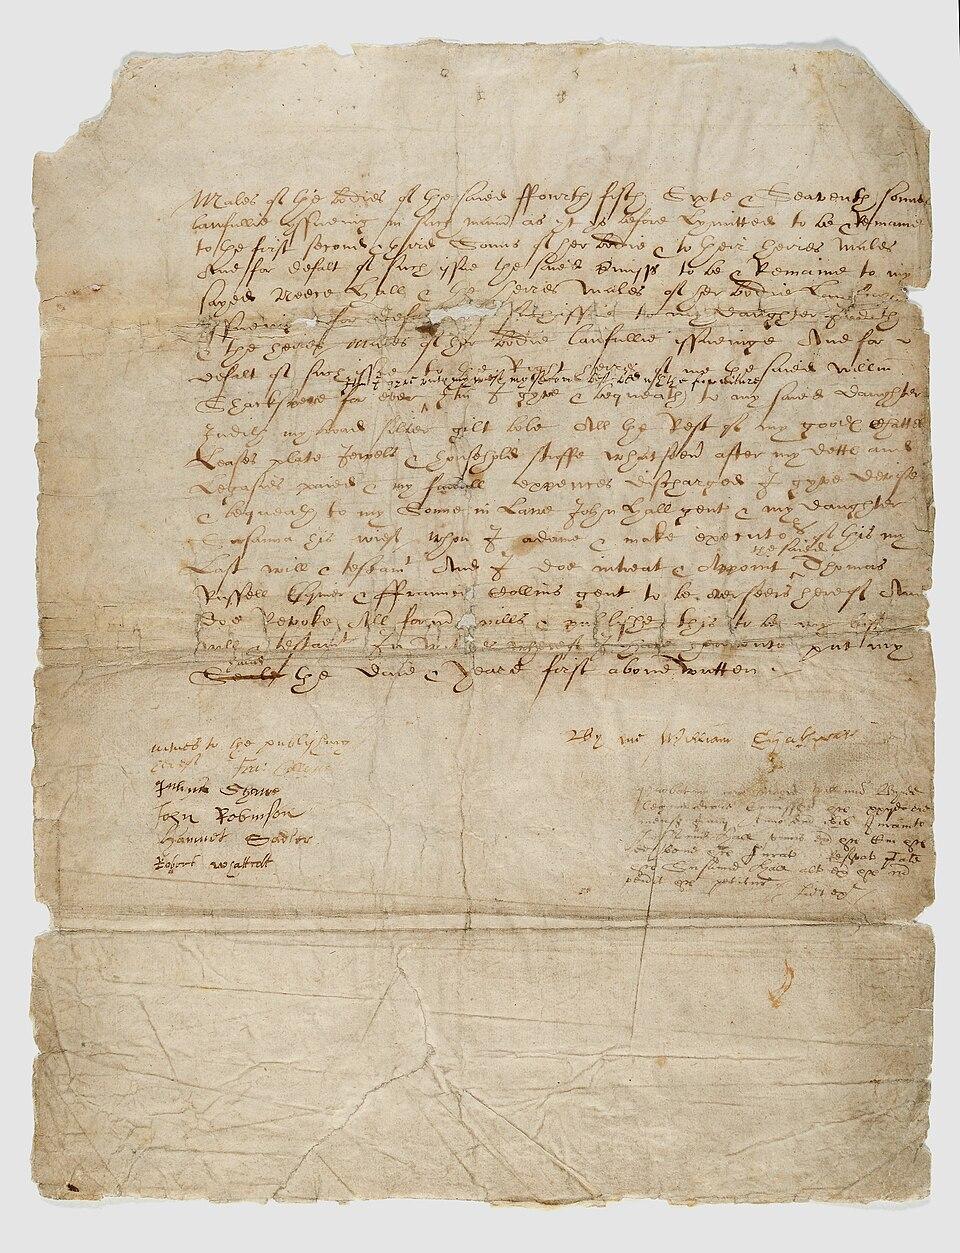 Males of the bodies of the saied ffourth fifth Sixte & Seaventh sonnes
lawfullie yssueing in such manner as yt ys before Lymitted to be & Remaine
to the first second & third Sonns of her bodie & to their heires Males
And for defalt of such issue the saied premisses to be & Remaine to my
sayed Neece Hall & the heires Males of her bodie Lawfully
yssueing for def issue to my daughter Judith
& the heires Males of her bodie lawfullie issueinge And for
defalt of such issue to the Right heires of me the saied willm
Itm I gyve unto my wief my second best bed wth the furniture
Shackspere for ever Itm I gyve & bequeath to my saied daughter
Judith my broad silver gilt bole All the Rest of my goodes Chattels
Leases plate Jewels & household stuffe whatsoever after my dettes and
Legasies paied & my funerall expences discharged I gyve devise
& bequeath to my Sonne in Lawe John Hall gent & my daughter
Susanna his wief whom I ordaine & make executors of this my
Last will & testament And I doe intreat & Appoint the saied Thomas
Russell Esquier & ffrauncis Collins gent to be overseers hereof And
doe Revoke All former wills & publishe this to be my last
will & testament In witnes whereof I have hereunto put my
hand
Seale the daie & Yeare first above written
witnes to the publishing
hereof Fra: Collyns
Julyus Shawe
John Robinson
Hamnet Sadler
Robert Whattcott
By me William Shakspeare